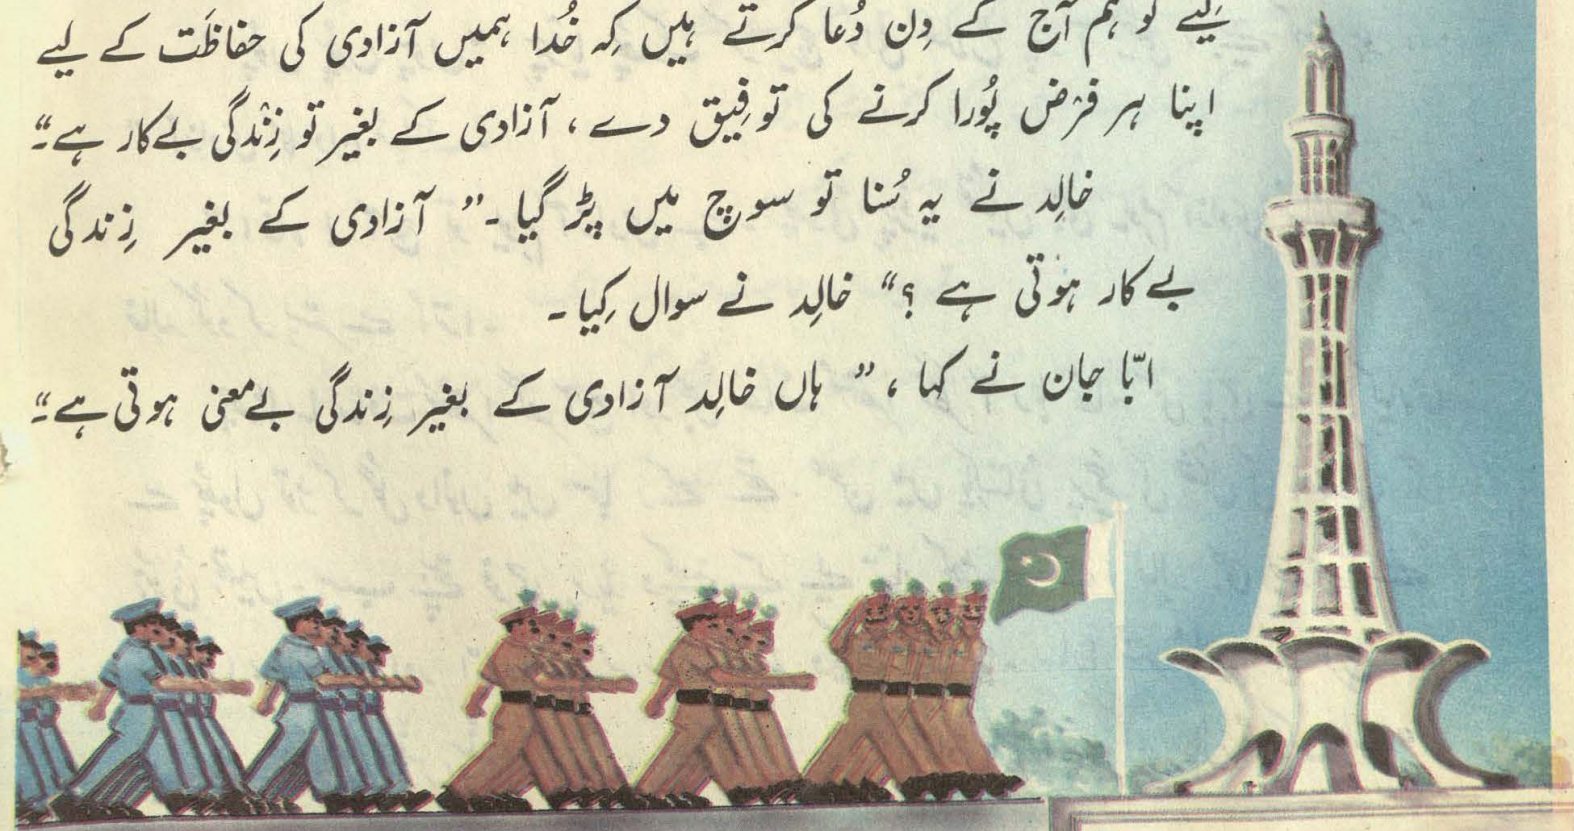 لیے تو ہم آج کے دِن دُعا کرتے ہیں کہ خُدا ہمیں آزادی کی حفاظَت کے لیے
اپنا ہر فرْض پُورا کرنے کی توفِیق دے ، آزادی کے بغیر تو زِنْدگی بےکار ہے۔“
خالِد نے یہ سُنا تو سوچ میں پڑ گیا ۔” آزادی کے بغیر زِندگی
بےکار ہوتی ہے ؟“ خالِد نے سوال کِیا ۔
ابّا جان نے کہا ، ” ہاں خالِد آزادی کے بغیر زِندگی بےمعنی ہوتی ہے۔“